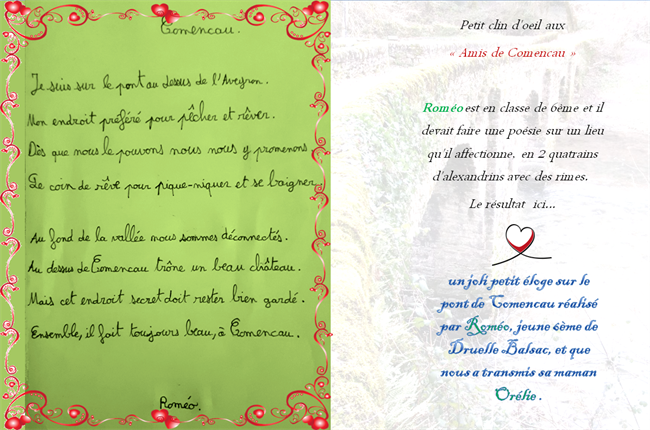 Comencau.
Je suis sur le pont au dessus de l'Aveyron.
Mon endroit préféré pour pêcher et rêver.
Dès que nous le pouvons nous nous y promenons,
Le coin de rêve pour pique-niquer et se baigner.
Au fond de la vallée nous sommes déconnectés.
Au dessus de Comencau trône un beau château.
Mais cet endroit secret doit rester bien gardé.
Ensemble, il fait toujours beau, à Comencau.
Roméo.
Petit clin d'oeil aux
« Amis de Comencau »
Roméo est en classe de 6ème et il
devait faire une poésie sur un lieu
qu'il affectionne, en 2 quatrains
d'alexandrins avec des rimes.
Le résultat ici...
un joli petit éloge sur le
pont de Comencau réalisé
par Roméo, jeune 6ème de
Druelle Balsac, et que
nous a transmis sa maman
Orélie .